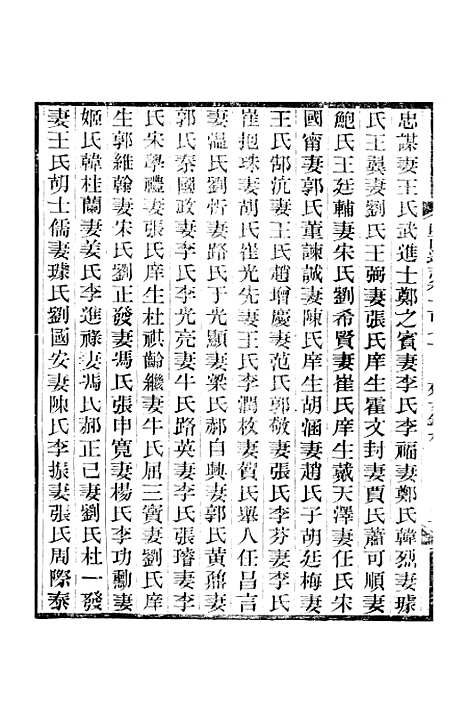 忠謀妻王氏武進士鄭之賓妻李氏李福妻鄭氏韓烈妻璩
氏王巽妻劉氏王弼妻張氏庠生霍文封妻賈氏蕭可順妻
鮑氏王廷輔妻宋氏劉希賢妻崔氏庠生戴天澤妻任氏宋
國甯妻郭氏董諫誠妻陳氏庠生胡涵妻趙氏子胡廷梅妻
王氏郜沆妻王氏趙增慶妻范氏郭敬妻張氏李芬妻李氏
崔抱珠妻胡氏崔光先妻王氏李潤枚妻賀氏舉人任呂言
妻溫氏劉哲妻路氏于光顯妻梁氏郝自興妻郭氏黃鼒妻
郭氏秦國政妻李氏李光亮妻牛氏路英妻李氏張璿妻李
氏宋學禮妻張氏庠生杜祺齡繼妻牛氏屈三寶妻劉氏庠
生郭維翰妻宋氏劉正發妻馮氏張申寬妻楊氏李功勳妻
姬氏韓桂蘭妻姜氏李進祿妻馮氏郝正己妻劉氏杜一發
妻王氏胡士儒妻璩氏劉國安妻陳氏李振妻張氏周際泰